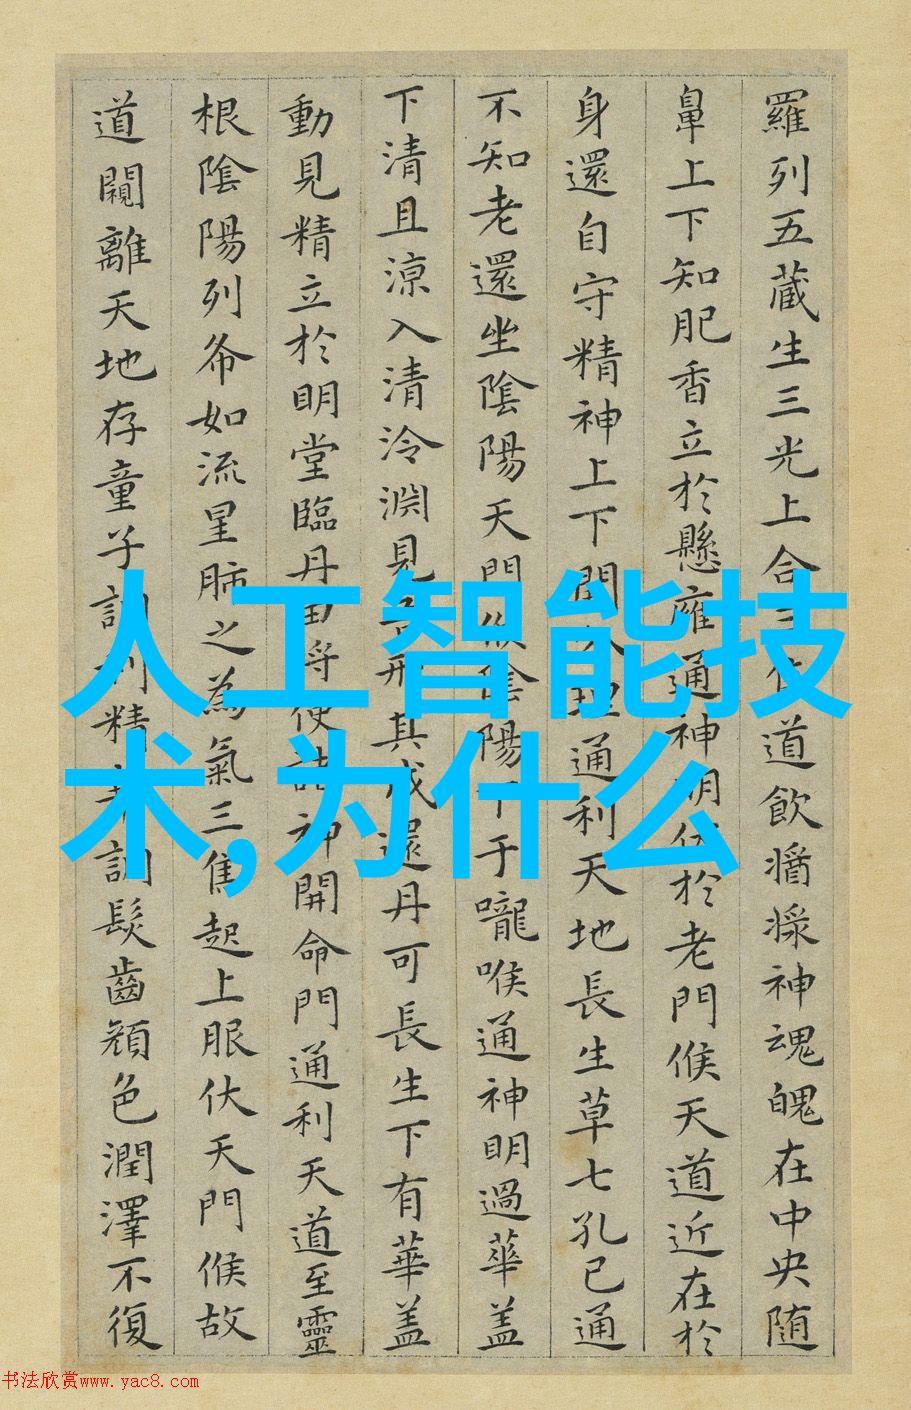 羅列五藏生三光上合三在道飲醬滌神魂魄在中央随
鼻上下知肥香立於懸廱通神明伏於老門候天道近在於
身還自守精神上下関分理通利天地長生草七孔已通
不知老還坐陰陽天門候陰陽下于嚨喉通神明過華盖
下清且涼入清泠淵見吾形其成還丹可長生下有華盖
動見精立於明堂臨丹田将使諸神開命門通利天道至靈
根陰陽列布如流星肺之為氣三焦起上服伏天門候故
道闚離天地存童子調利精華調髮齒顔色潤澤不復
人工智能技
术,为什么
书法欣赏www.yac8.com